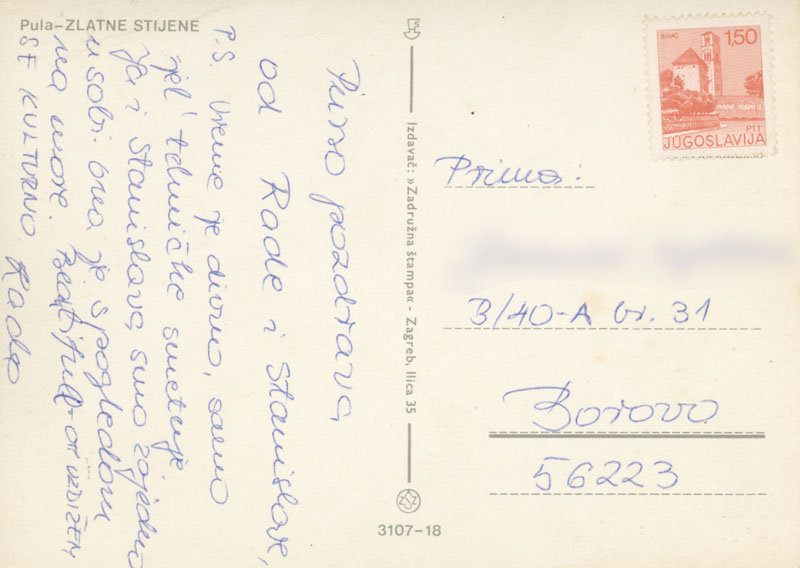 Pula–ZLATNE STIJENE
Puno pozdrava,
od Rade i Stanislave,
P.S. Vrijeme je divno, samo
njet tehničke smetnje
Ja i Stanislava smo zajedno
u sobi. Ona je s pogledom
na more.
SE KULTURNO Rade
Izdavač: »Zadružna štampa« - Zagreb, Ilica 35
3107–18
BIHAĆ
1,50
PTT
JUGOSLAVIJA
Prima:
B/40-A br. 31
Borovo
56223